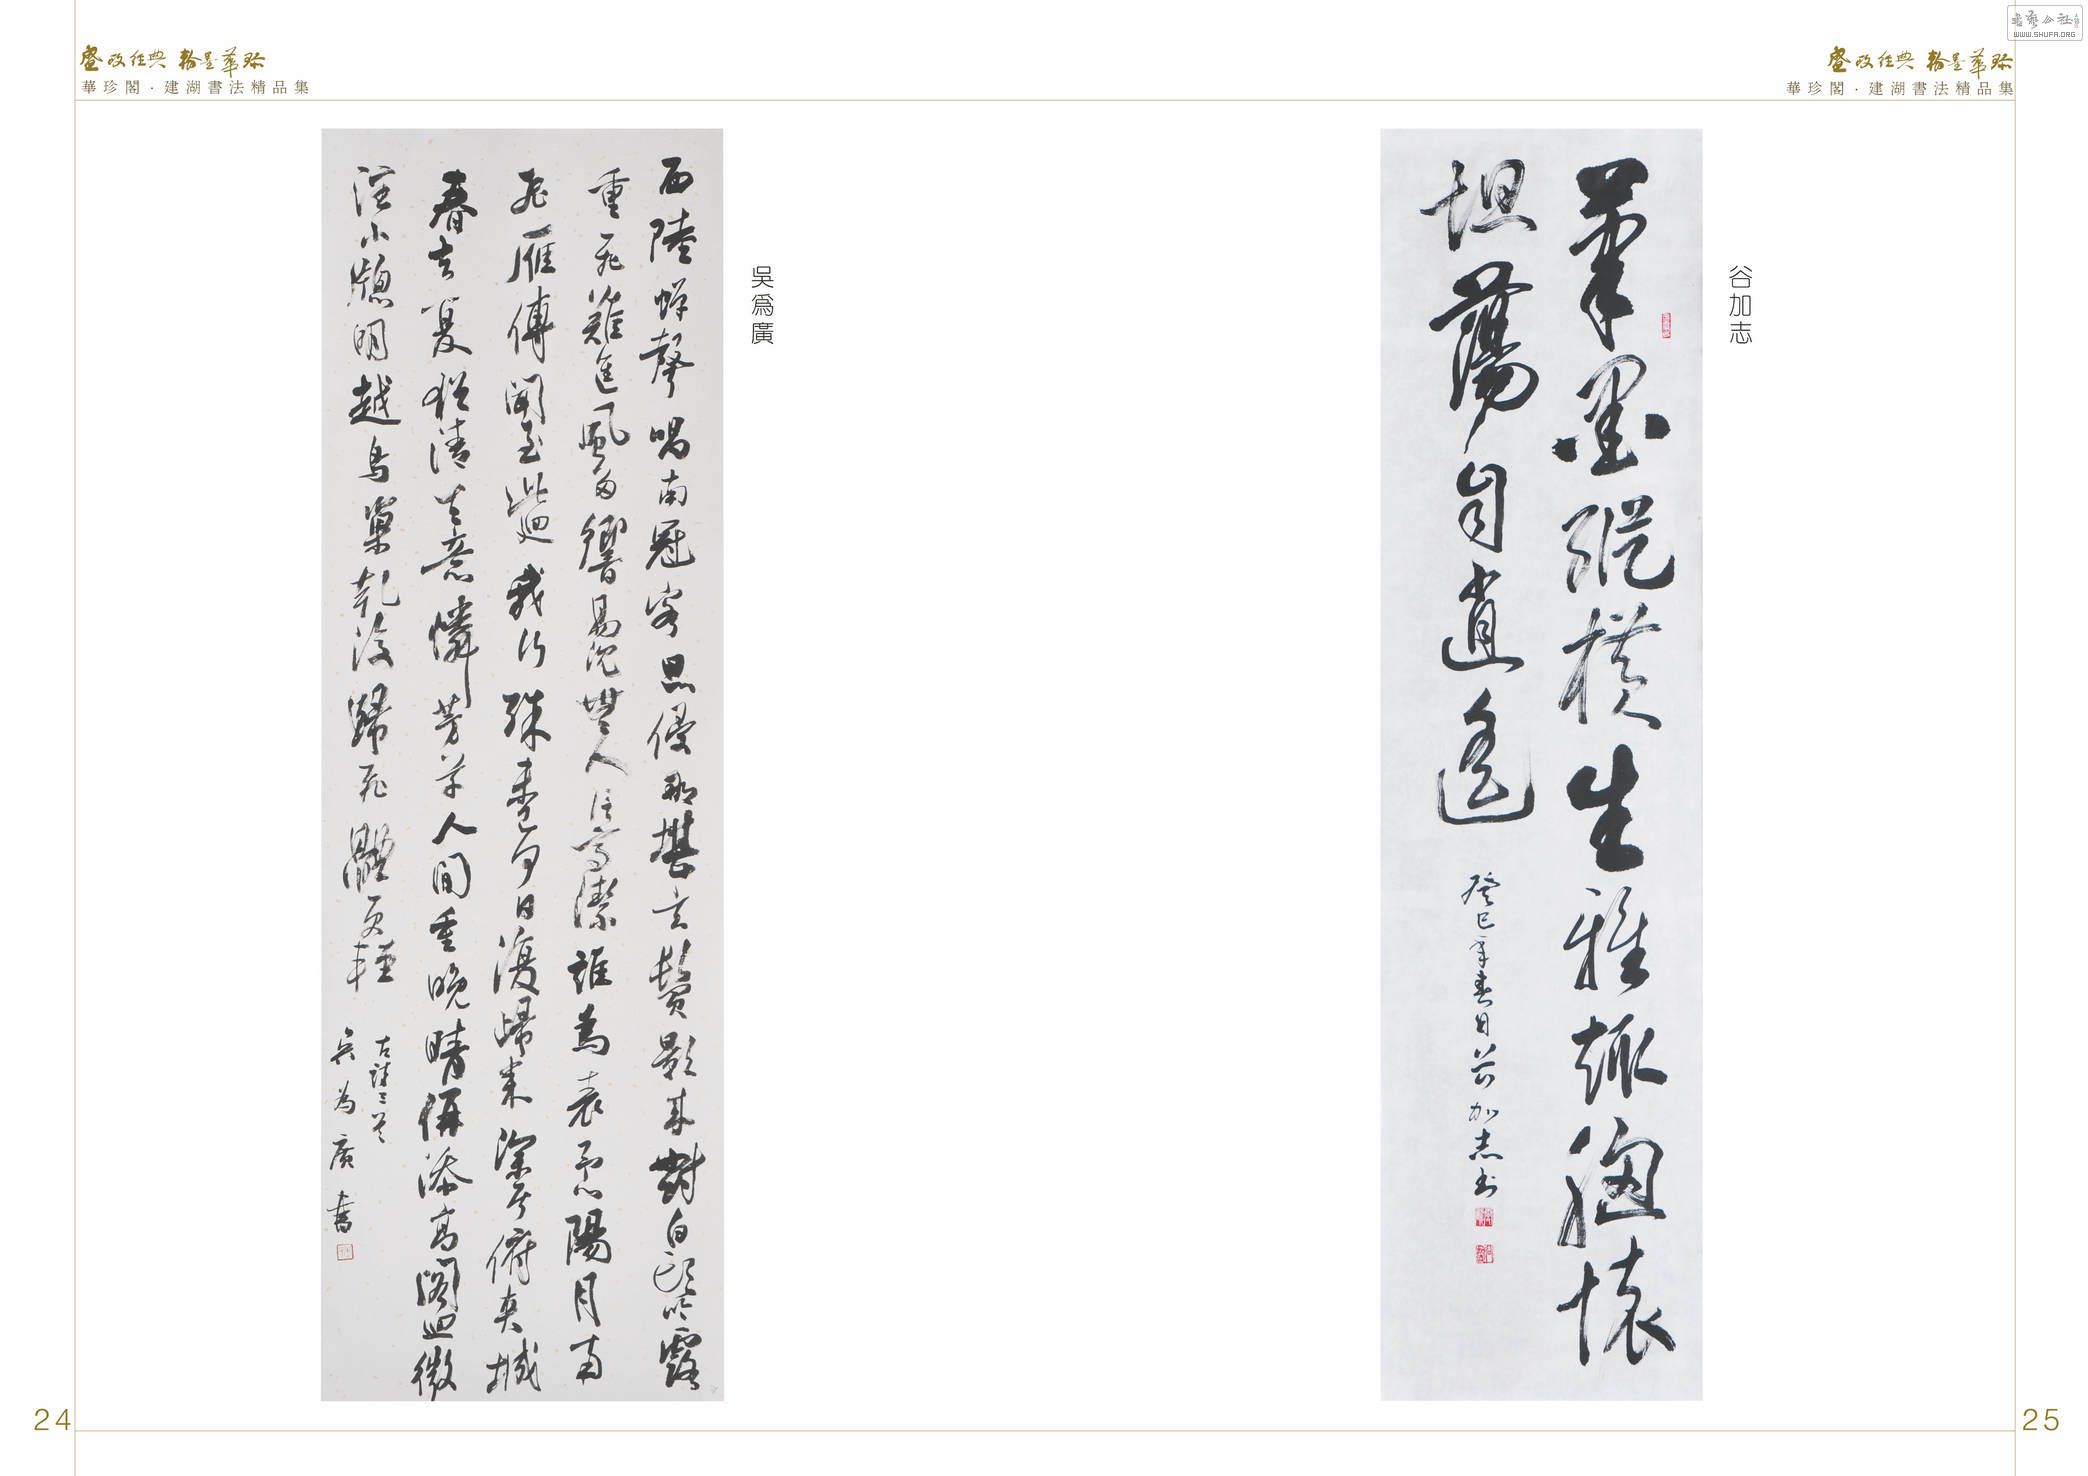 翰墨華珍
華珍閣·建湖書法精品集
西陸蟬聲唱南冠客思侵那堪玄鬢影來對白頭吟露
重飛難進風多響易沉無人信高潔誰為表予心陽月南
飛雁傳聞至此迴我行殊未已何日復歸來深居俯夾城
春去夏猶清天意憐芳草人間重晚晴併添高閣迴微
注小窗明越鳥巢乾後歸飛體更輕
古詩三首
吳為廣書
吳爲廣
24
翰墨華珍
華珍閣·建湖書法精品集
書藝公社
WWW.SHUFA.ORG
谷加志
筆墨縱橫生雅趣胸懷
坦蕩自逍遙
癸巳年春日谷加志書
25